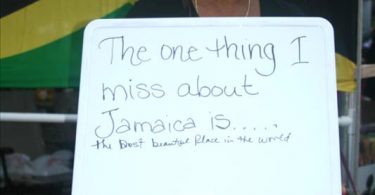 The one thing I
miss about
Jamaica is.....
the Most beautiful Place in the world